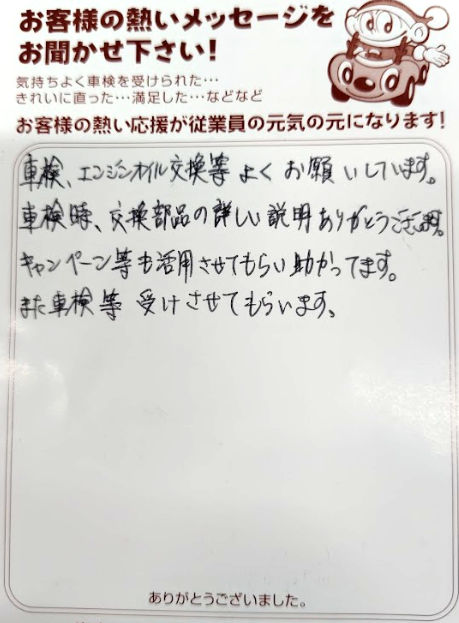 お客様の熱いメッセージを
お聞かせ下さい!
気持ちよく車検を受けられた…
きれいに直った…満足した…などなど
お客様の熱い応援が従業員の元気の元になります!
車検、エンジンオイル交換等 よく お願いしています。
車検時、交換部品の詳しい説明ありがとうございます。
キャンペーン等も活用させてもらい助かってます。
また車検等 受けさせてもらいます。
ありがとうございました。